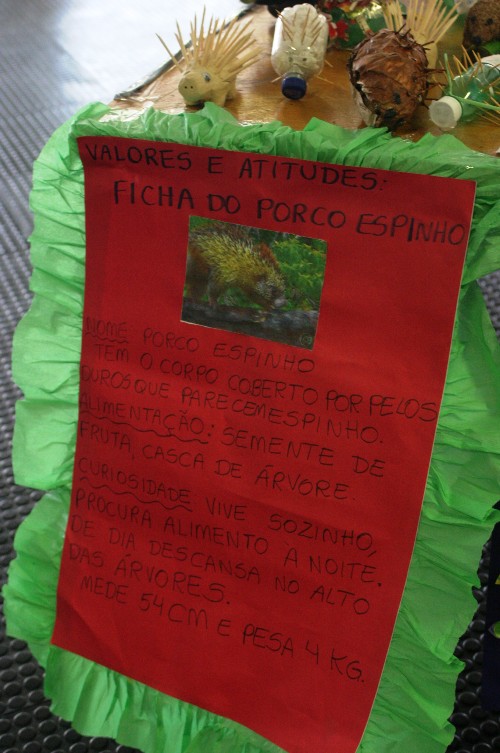 VALORES E ATITUDES:
FICHA DO PORCO ESPINHO
NOME PORCO ESPINHO
TEM O CORPO COBERTO POR PELOS
DUROS QUE PARECEM ESPINHO.
ALIMENTAÇÃO: SEMENTE DE
FRUTA, CASCA DE ÁRVORE.
CURIOSIDADE VIVE SOZINHO,
PROCURA ALIMENTO A NOITE.
DE DIA DESCANSA NO ALTO
DAS ÁRVORES.
MEDE 54CM E PESA 4 KG.